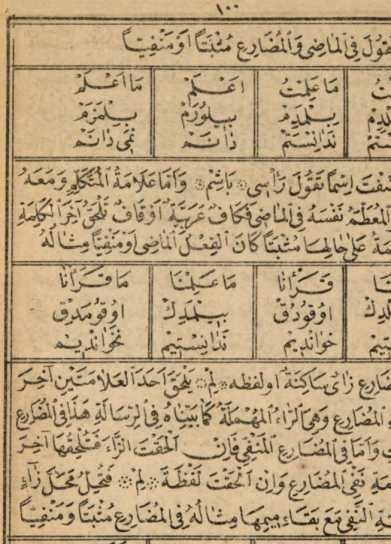 ١٠٠
تقول فى الماضى والمضارع مثبتا او منفيا
ما علمت اعلم ما اعلم
بيلمدم بيلورم بيلمزم
ندانستم دانم نمى دانم
اسما تقول رأسى باشم واما علامة المتكلم ومعه
المعظم نفسه فى الماضى فكاف عربية او قاف تلحق آخر الكلمة
على حالها مثبتا كان الفعل الماضى او منفيا مثاله
ما علمنا قرأنا ما قرأنا
بيلمدك اوقودق اوقومدق
ندانستيم خوانديم نخوانديم
زاى ساكنة او لفظه لم يلحق احد العلامتين آخر
المضارع وهى الراء المهملة كما بيناه فى الرسالة هذا فى المضارع
واما فى المضارع المنفى فان الحقت الزاء فتلحقها آخر
نفى المضارع وان الحقت لفظة لم فحل محل زاء
النفى مع بقاء ميمها مثاله فى المضارع مثبتا ومنفيا